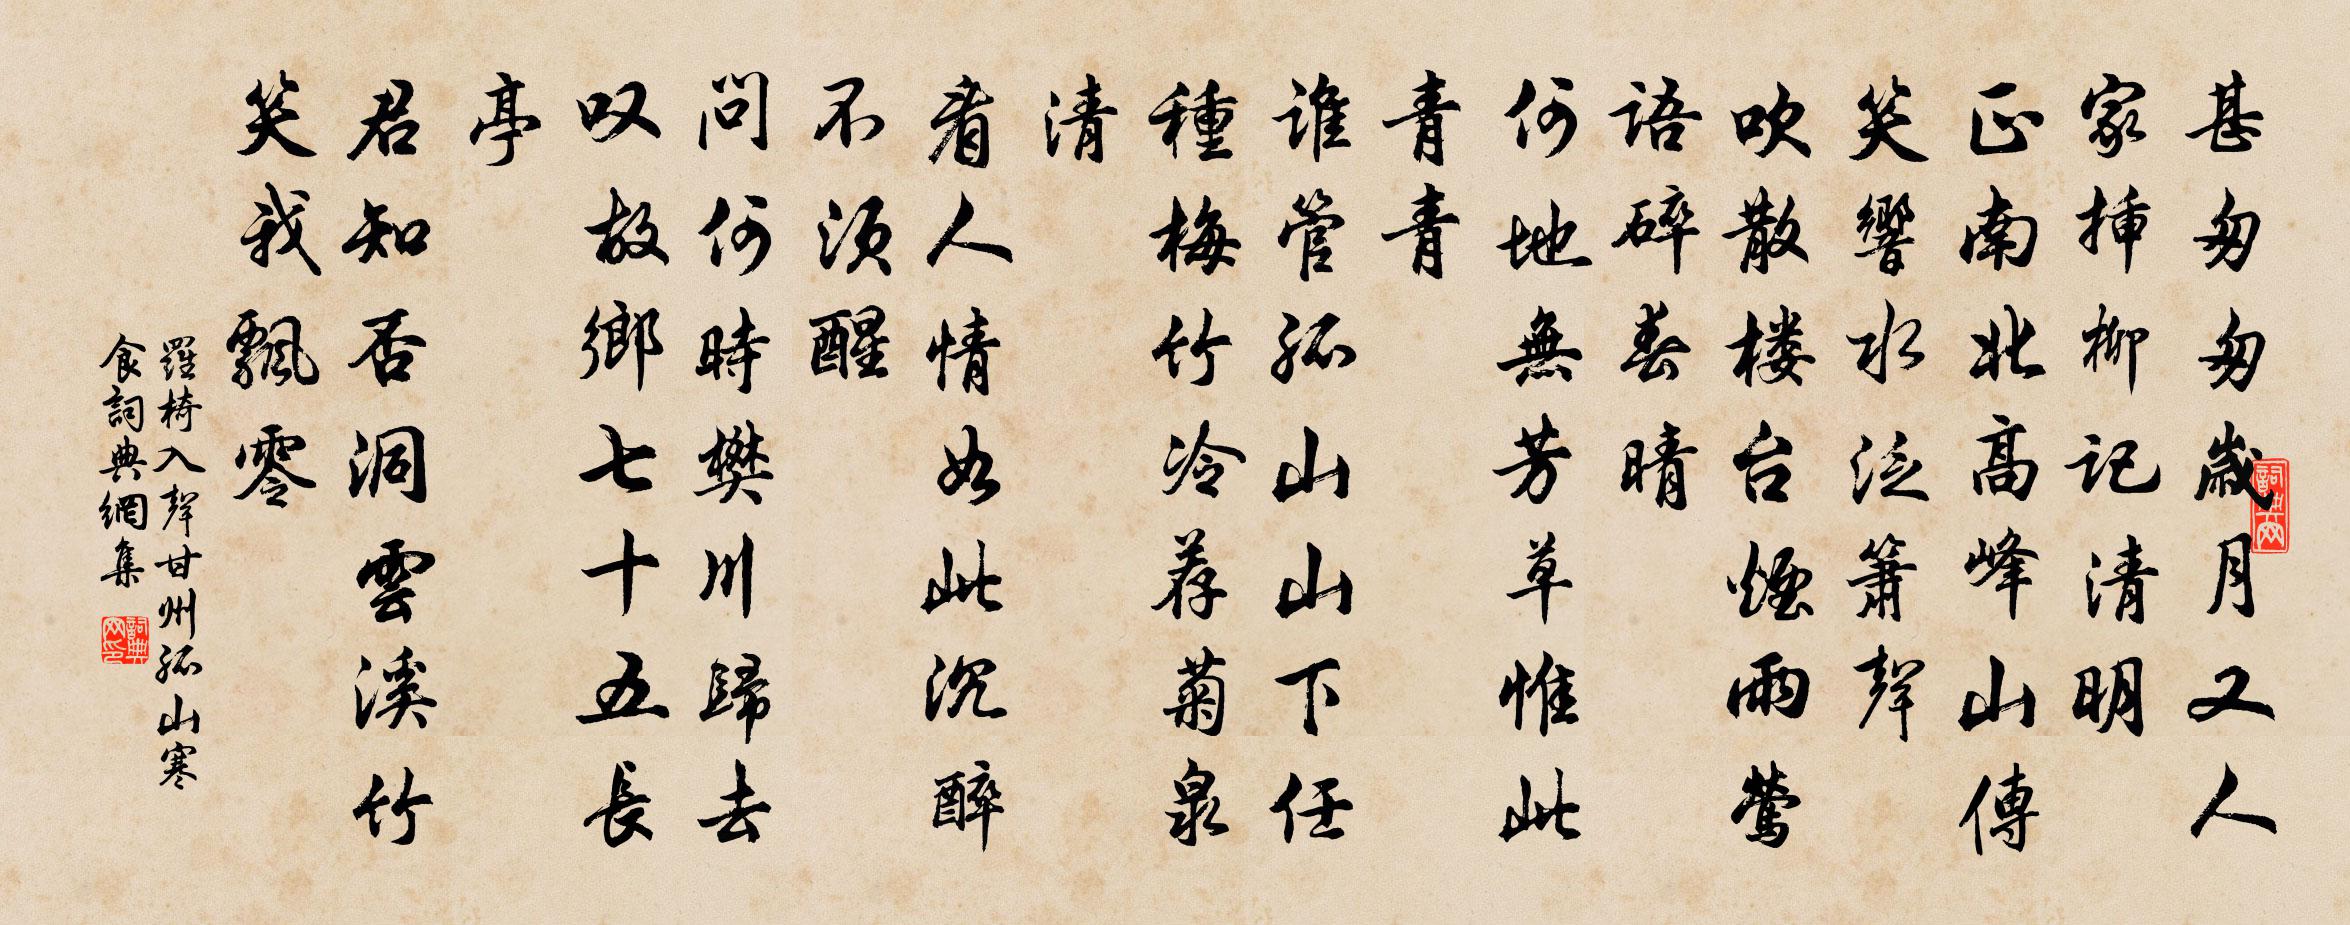 甚匆匆歲月又人
家插柳記清明
正南北高峰山傳
笑響水泛簫聲
吹散楼台煙雨鶯
語碎春晴
何地無芳草惟此
青青
誰管孤山山下任
種梅竹冷荐菊泉
清
看人情如此沉醉
不須醒
問何時樊川歸去
叹故鄉七十五長
亭
君知否洞雲溪竹
笑我飄零
羅椅八聲甘州孤山寒
食詞典網集